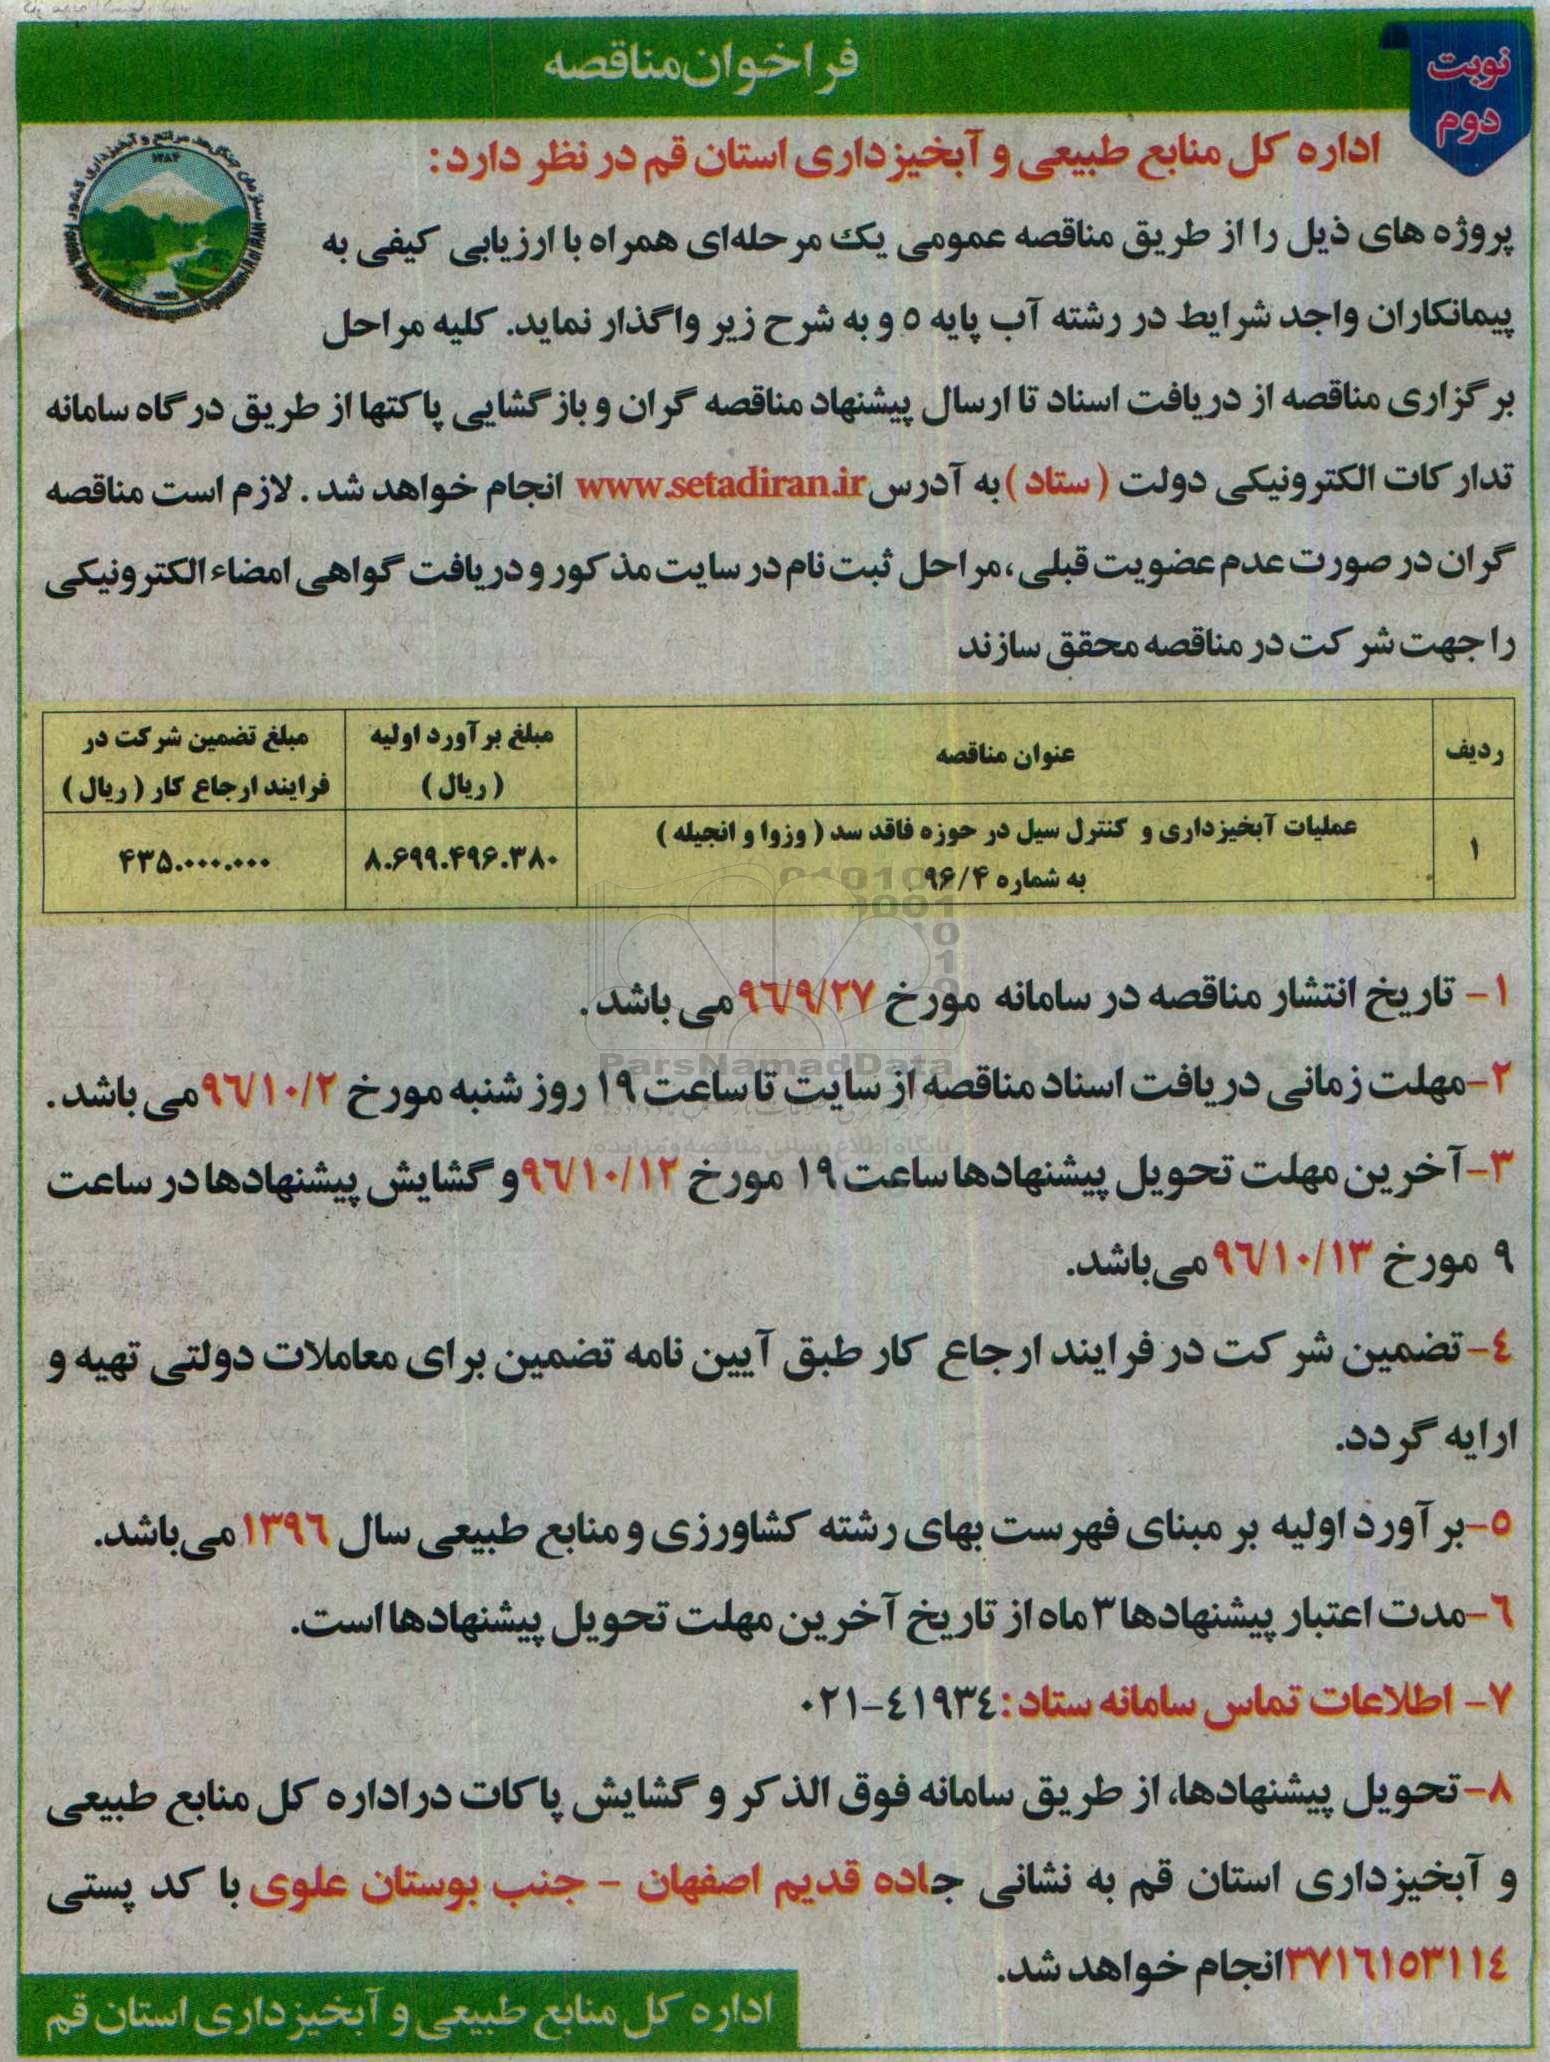 فراخوان مناقصه
نوبت
دوم
اداره کل منابع طبیعی و آبخیزداری استان قم در نظر دارد:
پروژه های ذیل را از طریق مناقصه عمومی یک مرحله‌ای همراه با ارزیابی کیفی به
پیمانکاران واجد شرایط در رشته آب پایه ۵ و به شرح زیر واگذار نماید. کلیه مراحل
برگزاری مناقصه از دریافت اسناد تا ارسال پیشنهاد مناقصه گران و بازگشایی پاکتها از طریق درگاه سامانه
تدارکات الکترونیکی دولت ( ستاد ) به آدرس www.setadiran.ir انجام خواهد شد . لازم است مناقصه
گران در صورت عدم عضویت قبلی ، مراحل ثبت نام در سایت مذکور و دریافت گواهی امضاء الکترونیکی
را جهت شرکت در مناقصه محقق سازند
ردیف
عنوان مناقصه
مبلغ برآورد اولیه
( ریال )
مبلغ تضمین شرکت در
فرایند ارجاع کار ( ریال )
۱
عملیات آبخیزداری و کنترل سیل در حوزه فاقد سد ( وزوا و انجیله )
به شماره ۹۶/۴
۸.۶۹۹.۴۹۶.۳۸۰
۴۳۵.۰۰۰.۰۰۰
۱- تاریخ انتشار مناقصه در سامانه مورخ ۹۶/۹/۲۷ می باشد .
ParsNamadData
۲- مهلت زمانی دریافت اسناد مناقصه از سایت تا ساعت ۱۹ روز شنبه مورخ ۹۶/۱۰/۲ می باشد .
۳- آخرین مهلت تحویل پیشنهادها ساعت ۱۹ مورخ ۹۶/۱۰/۱۲ و گشایش پیشنهادها در ساعت
۹ مورخ ۹۶/۱۰/۱۳ می‌باشد.
۴- تضمین شرکت در فرایند ارجاع کار طبق آیین نامه تضمین برای معاملات دولتی تهیه و
ارایه گردد.
۵- برآورد اولیه بر مبنای فهرست بهای رشته کشاورزی و منابع طبیعی سال ۱۳۹۶ می‌باشد.
۶- مدت اعتبار پیشنهادها ۳ ماه از تاریخ آخرین مهلت تحویل پیشنهادها است.
۷- اطلاعات تماس سامانه ستاد : ۴۱۹۳۴-۰۲۱
۸- تحویل پیشنهادها، از طریق سامانه فوق الذکر و گشایش پاکات در اداره کل منابع طبیعی
و آبخیزداری استان قم به نشانی جاده قدیم اصفهان - جنب بوستان علوی با کد پستی
۳۷۱۶۱۵۳۱۱۴ انجام خواهد شد.
اداره کل منابع طبیعی و آبخیزداری استان قم